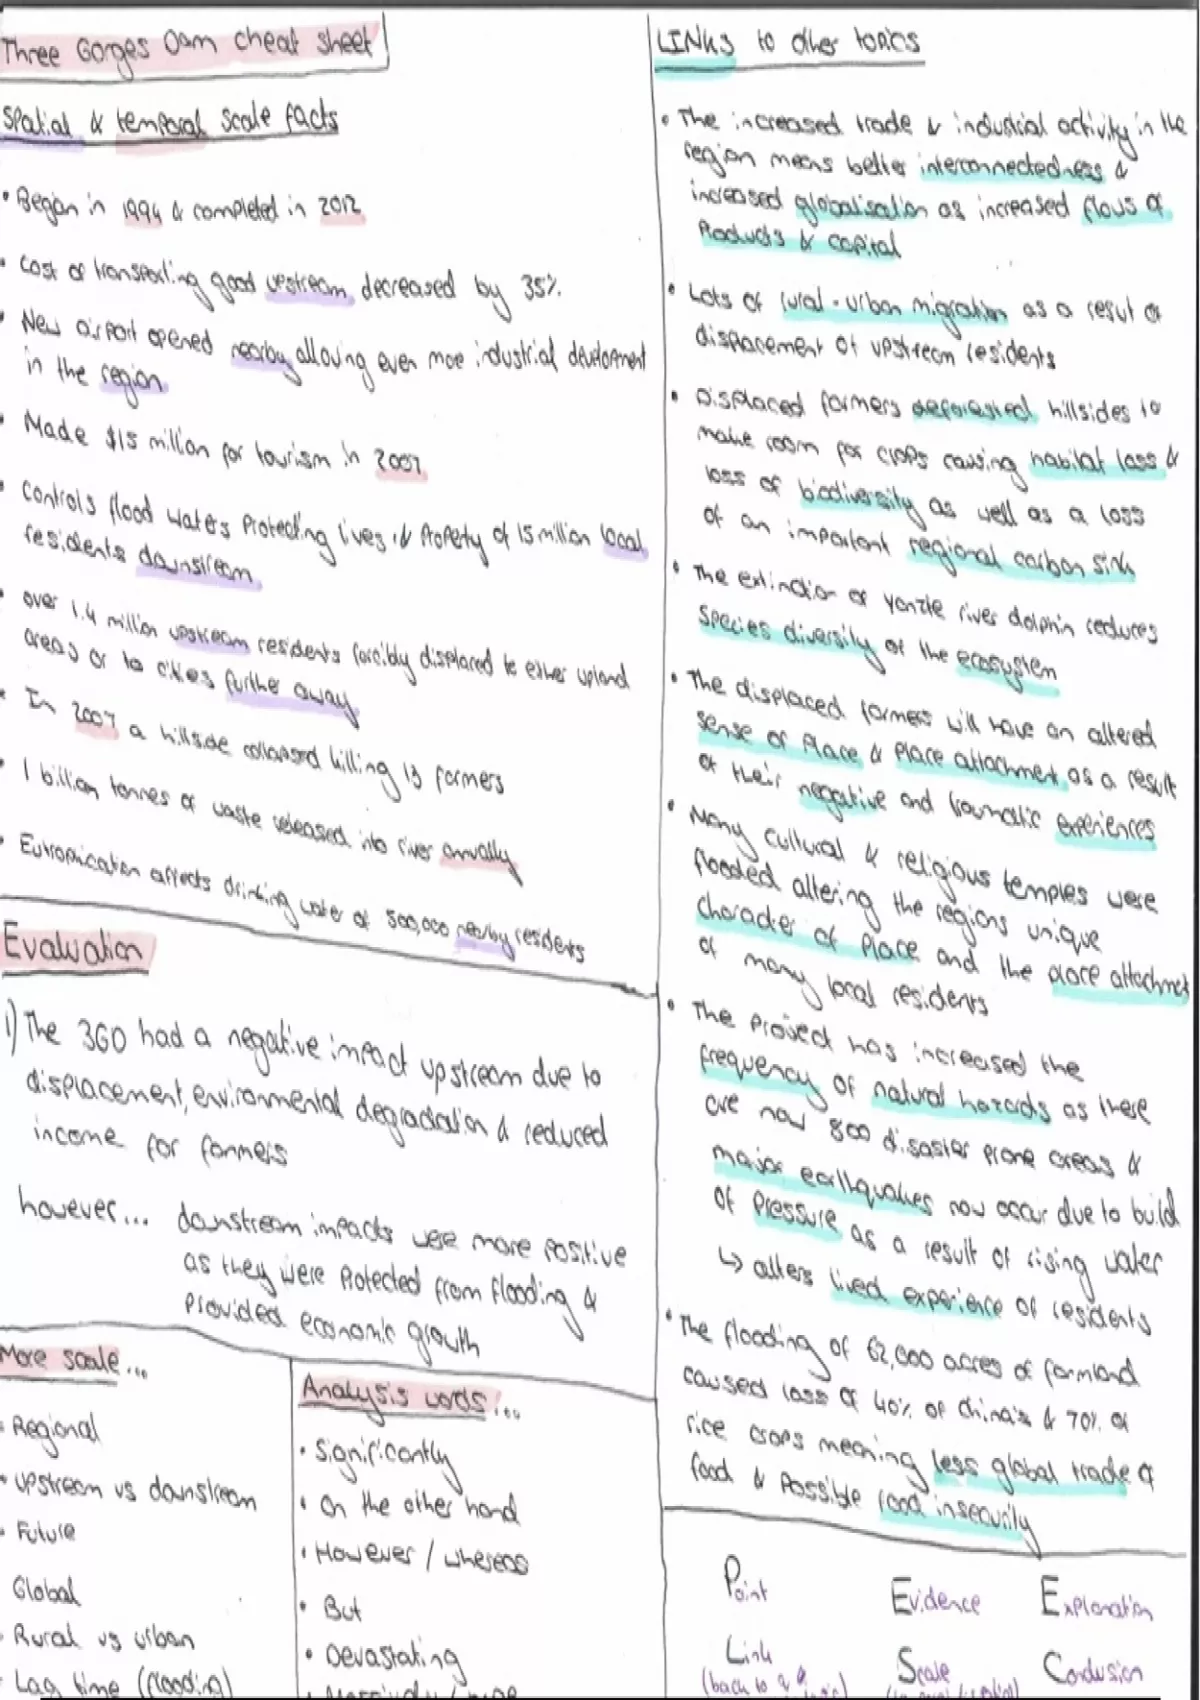 Three Gorges Dam cheat sheet
Spatial & temporal scale facts
• Began in 1994 & completed in 2012
• Cost of transporting good upstream decreased by 35%.
• New airport opened nearby allowing even more industrial development
in the region
• Made $15 million for tourism in 2007
• Controls flood waters Protecting lives & Property of 15 million local
residents downstream
• over 1.4 million upstream residents forcibly displaced to either upland
areas or to cities further away
• In 2007 a hillside collapsed killing 13 farmers
• 1 billion tonnes of waste released into river annually
• Eutrophication affects drinking water of 500,000 nearby residents
Evaluation
1) The 3GD had a negative impact upstream due to
displacement, environmental degradation & reduced
income for farmers
however... downstream impacts were more positive
as they were Protected from flooding &
Provided economic growth
More scale...
• Regional
• upstream vs downstream
• Future
Global
• Rural vs urban
• Lag time (flooding)
Analysis words...
• Significantly
• On the other hand
• However / whereas
• But
• Devastating
LINKS to other topics
• The increased trade & industrial activity in the
region means better interconnectedness &
increased globalisation as increased flows of
Products & capital
• Lots of rural-urban migration as a result of
displacement of upstream residents
• Displaced farmers deforested hillsides to
make room for crops causing habitat loss &
loss of biodiversity as well as a loss
of an important regional carbon sink
• The extinction of Yantze river dolphin reduces
species diversity of the ecosystem
• The displaced farmers will have an altered
sense of Place & Place attachment as a result
of their negative and traumatic experiences
• Many cultural & religious temples were
flooded altering the regions unique
character of Place and the place attachment
of many local residents
• The Project has increased the
frequency of natural hazards as there
are now 800 disaster prone areas &
major earthquakes now occur due to build
of Pressure as a result of rising water
↳ alters lived experience of residents
• The flooding of 62,000 acres of farmland
caused loss of 40% of China's & 70% of
rice crops meaning less global trade of
food & Possible food insecurity
Point Evidence Explanation
Link Scale Conclusion
(back to q &